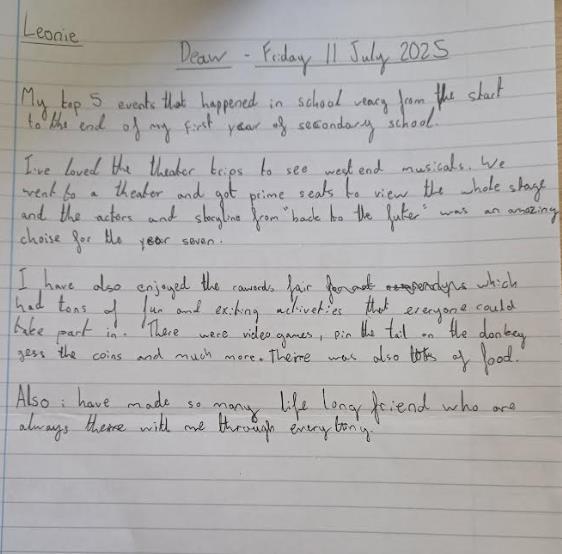 Leonie
Dear - Friday 11 July 2025
My top 5 events that happened in school from the start
to the end of my first year of secondary school.
I've loved the theater trips to see west end musicals. We
went to a theater and got prime seats to view the whole stage
and the actors and storyline from "back to the futer" was an amazing
choise for the year seven.
I have also enjoyed the fair which
had tons of fun and exiting that everyone could
take part in. There were video games, pin the tail on the donkey
gess the coins and much more. Theire was also lots of food.
Also i have made so many life long friend who are
always theire with me through everytong.